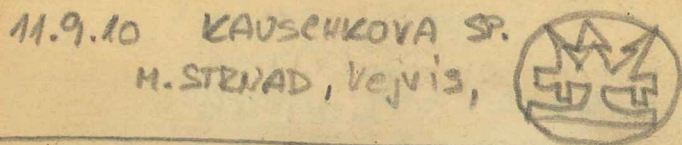 11.9.10 KAUSCHKOVA SP.
M. STRNAD, Vejvis,